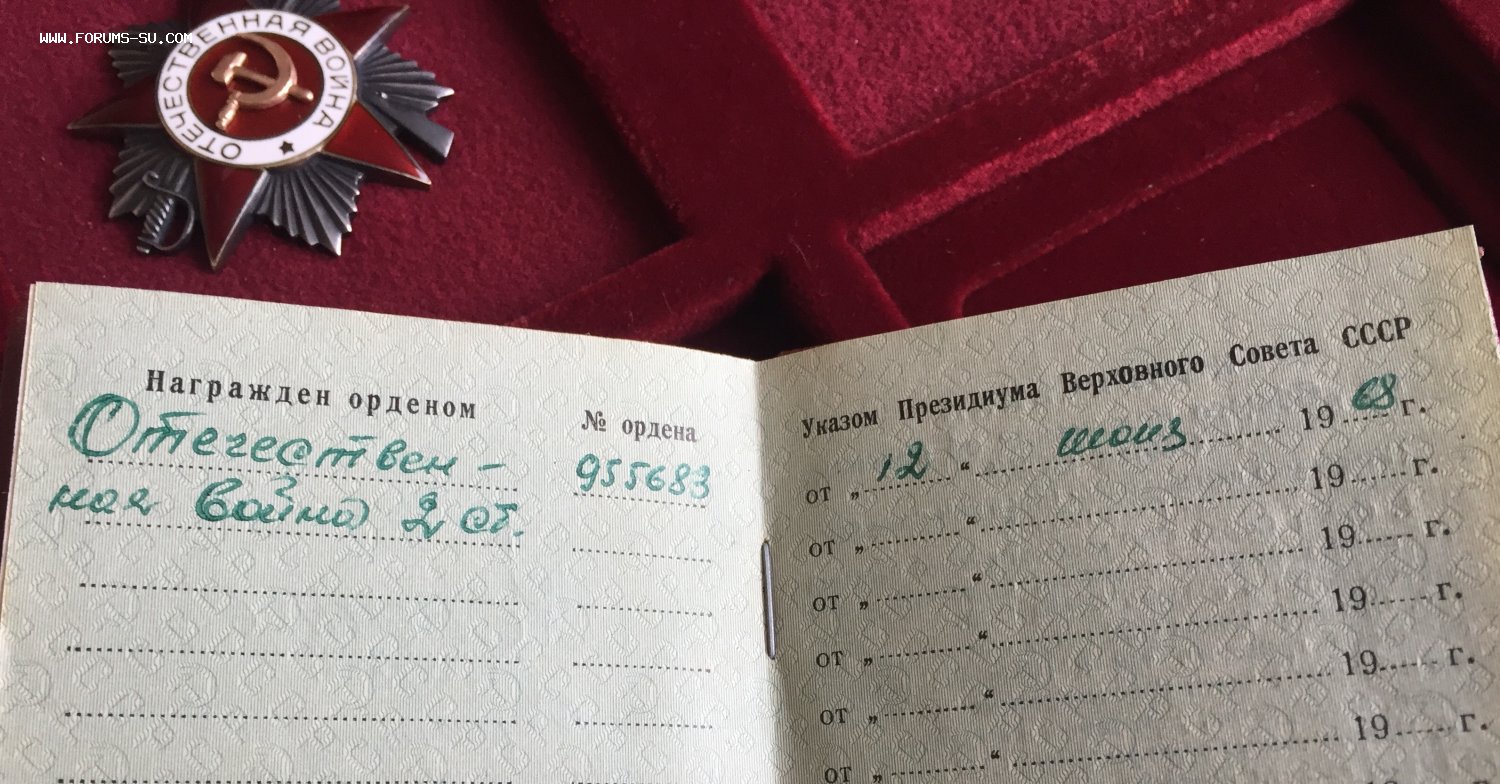 WWW.FORUMS-SU.COM
ОТЕЧЕСТВЕННАЯ ВОЙНА
Награжден орденом
№ ордена
Отечествен -
955683
ная Война 2 ст.
Указом Президиума Верховного Совета СССР
от „ 12 “ июня 19 68 г.
от „ “ 19 г.
от „ “ 19 г.
от „ “ 19 г.
от „ “ 19 г.
от „ “ 19 г.